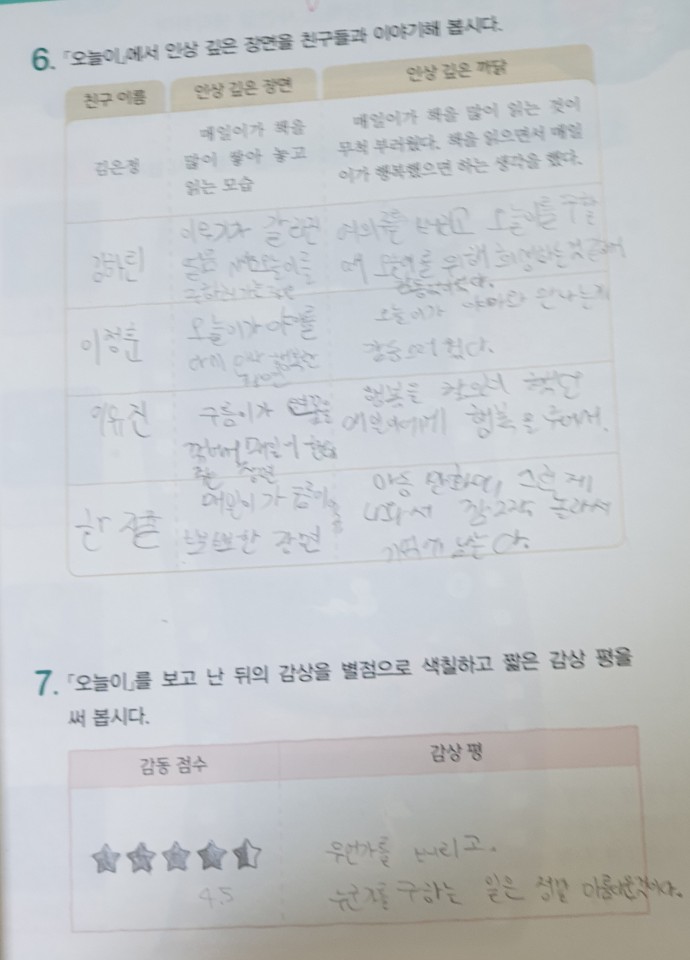 6. 「오늘이」에서 인상 깊은 장면을 친구들과 이야기해 봅시다.
친구 이름 인상 깊은 장면 인상 깊은 까닭
김은정
매일이가 책을
많이 쌓아 놓고
읽는 모습
매일이가 책을 많이 읽는 것이
무척 부러웠다. 책을 읽으면서 매일
이가 행복했으면 하는 생각을 했다.
이무기가 갈라진
오늘이를
여의주를 버리고 오늘이를 구할
때 위해 희생하는
이정훈
오늘이가 야아를
행복한
오늘이가 야아와 만나는게
감동
이유진
구름이가 연꽃을
꺾어서 매일이 한테
주는 장면
행복을 찾으러
매일이에게 행복을 주어서.
한
매일이가
뽀뽀한 장면
나와서 깜짝 놀라서
기억에 남는다.
7. 「오늘이」를 보고 난 뒤의 감상을 별점으로 색칠하고 짧은 감상 평을
써 봅시다.
감동 점수 감상 평
4.5
무언가를 버리고.
누군가를 구하는 일은 정말 아름다운것이다.